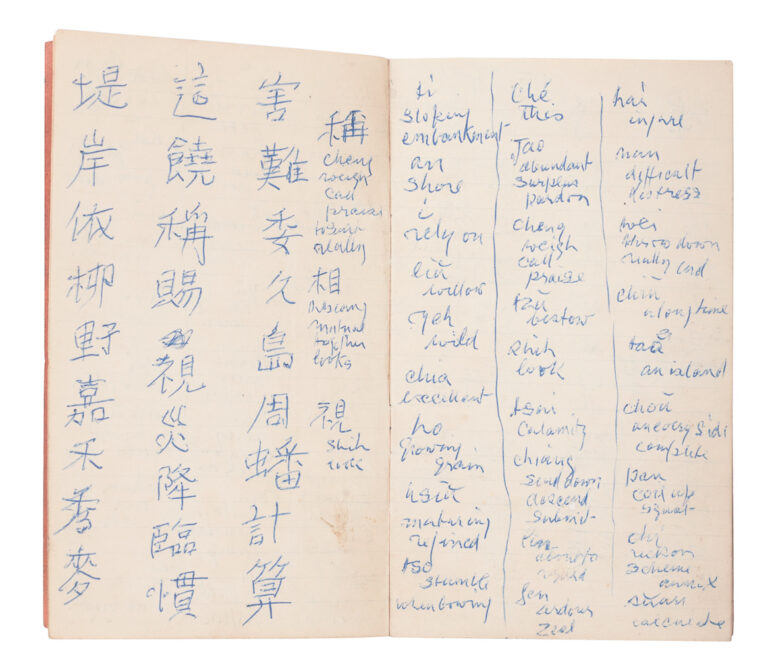 堤岸依柳野嘉禾秀夎
這饒稱賜視災降臨憤
害難委久島周蟠計算
稱
cheng
weigh
call
praise
相
mutual
together
looks
視
shih
look
ti
sloping
embankment
an
shore
i
rely on
liu
willow
yeh
wild
chia
excellent
ho
growing
grain
hsiu
maturing
refined
tso
stumble
when bowing
ché
this
Jao
abundant
surplus
pardon
cheng
weigh
call
praise
tzŭ
bestow
shih
look
tsai
calamity
chiang
send down
descend
submit
lin
regard
fen
ardour
zeal
hai
injure
nan
difficult
distress
wei
throw down
really end
chiu
a long time
tao
an island
chou
on every side
complete
pan
coil up
squat
chi
reckon
scheme
annex
suan
calculate